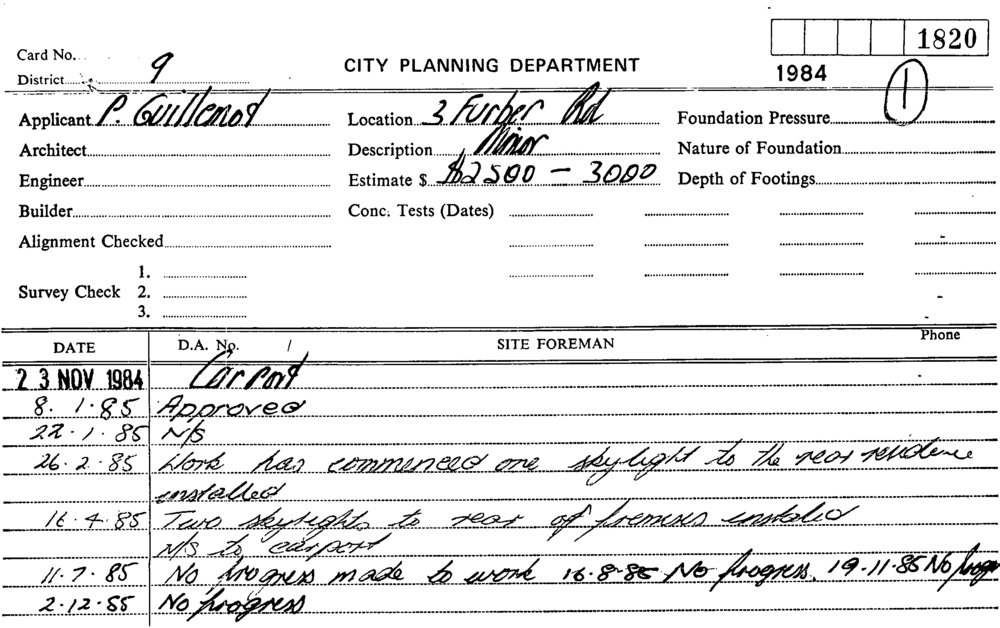 Card No. 1820
District 9 CITY PLANNING DEPARTMENT 1984 1
Applicant P. Guillemot Location 3 Furber Rd Foundation Pressure
Architect Description Minor Nature of Foundation
Engineer Estimate $ $2500 — 3000 Depth of Footings
Builder Conc. Tests (Dates)
Alignment Checked
1.
Survey Check 2.
3.
DATE D.A. No. / SITE FOREMAN Phone
23 NOV 1984 Carport
8. 1. 85 Approved
22. 1. 85 N/S
26. 2. 85 Work has commenced one skylight to the rear residence
installed
16. 4. 85 Two skylights to rear of premises installed
N/S to carport
11. 7. 85 No progress made to work 16.8.85 No progress. 19.11.85 No
2.12.85 No progress